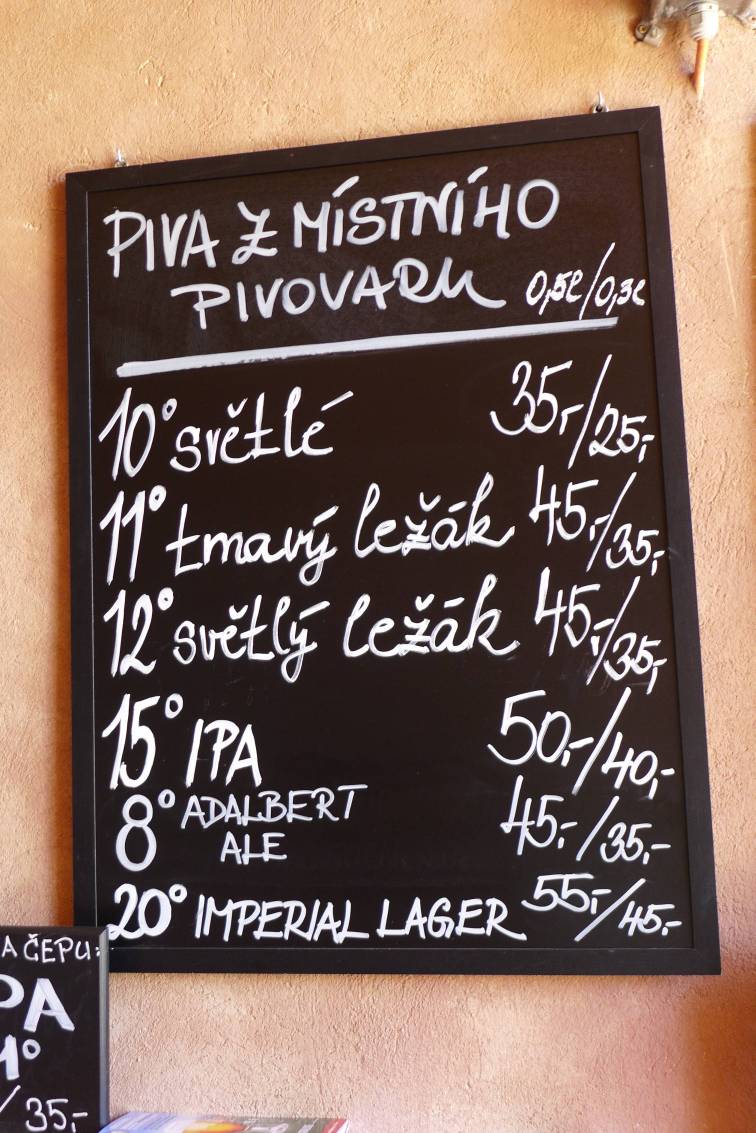 PIVA Z MÍSTNÍHO
PIVOVARU 0,5l/0,3l
10° světlé 35,-/25,-
11° tmavý ležák 45,-/35,-
12° světlý ležák 45,-/35,-
15° IPA 50,-/40,-
8° ADALBERT 45,-/35,-
ALE
20° IMPERIAL LAGER 55,-/45,-
A ČEPU:
PA
1°
/35,-